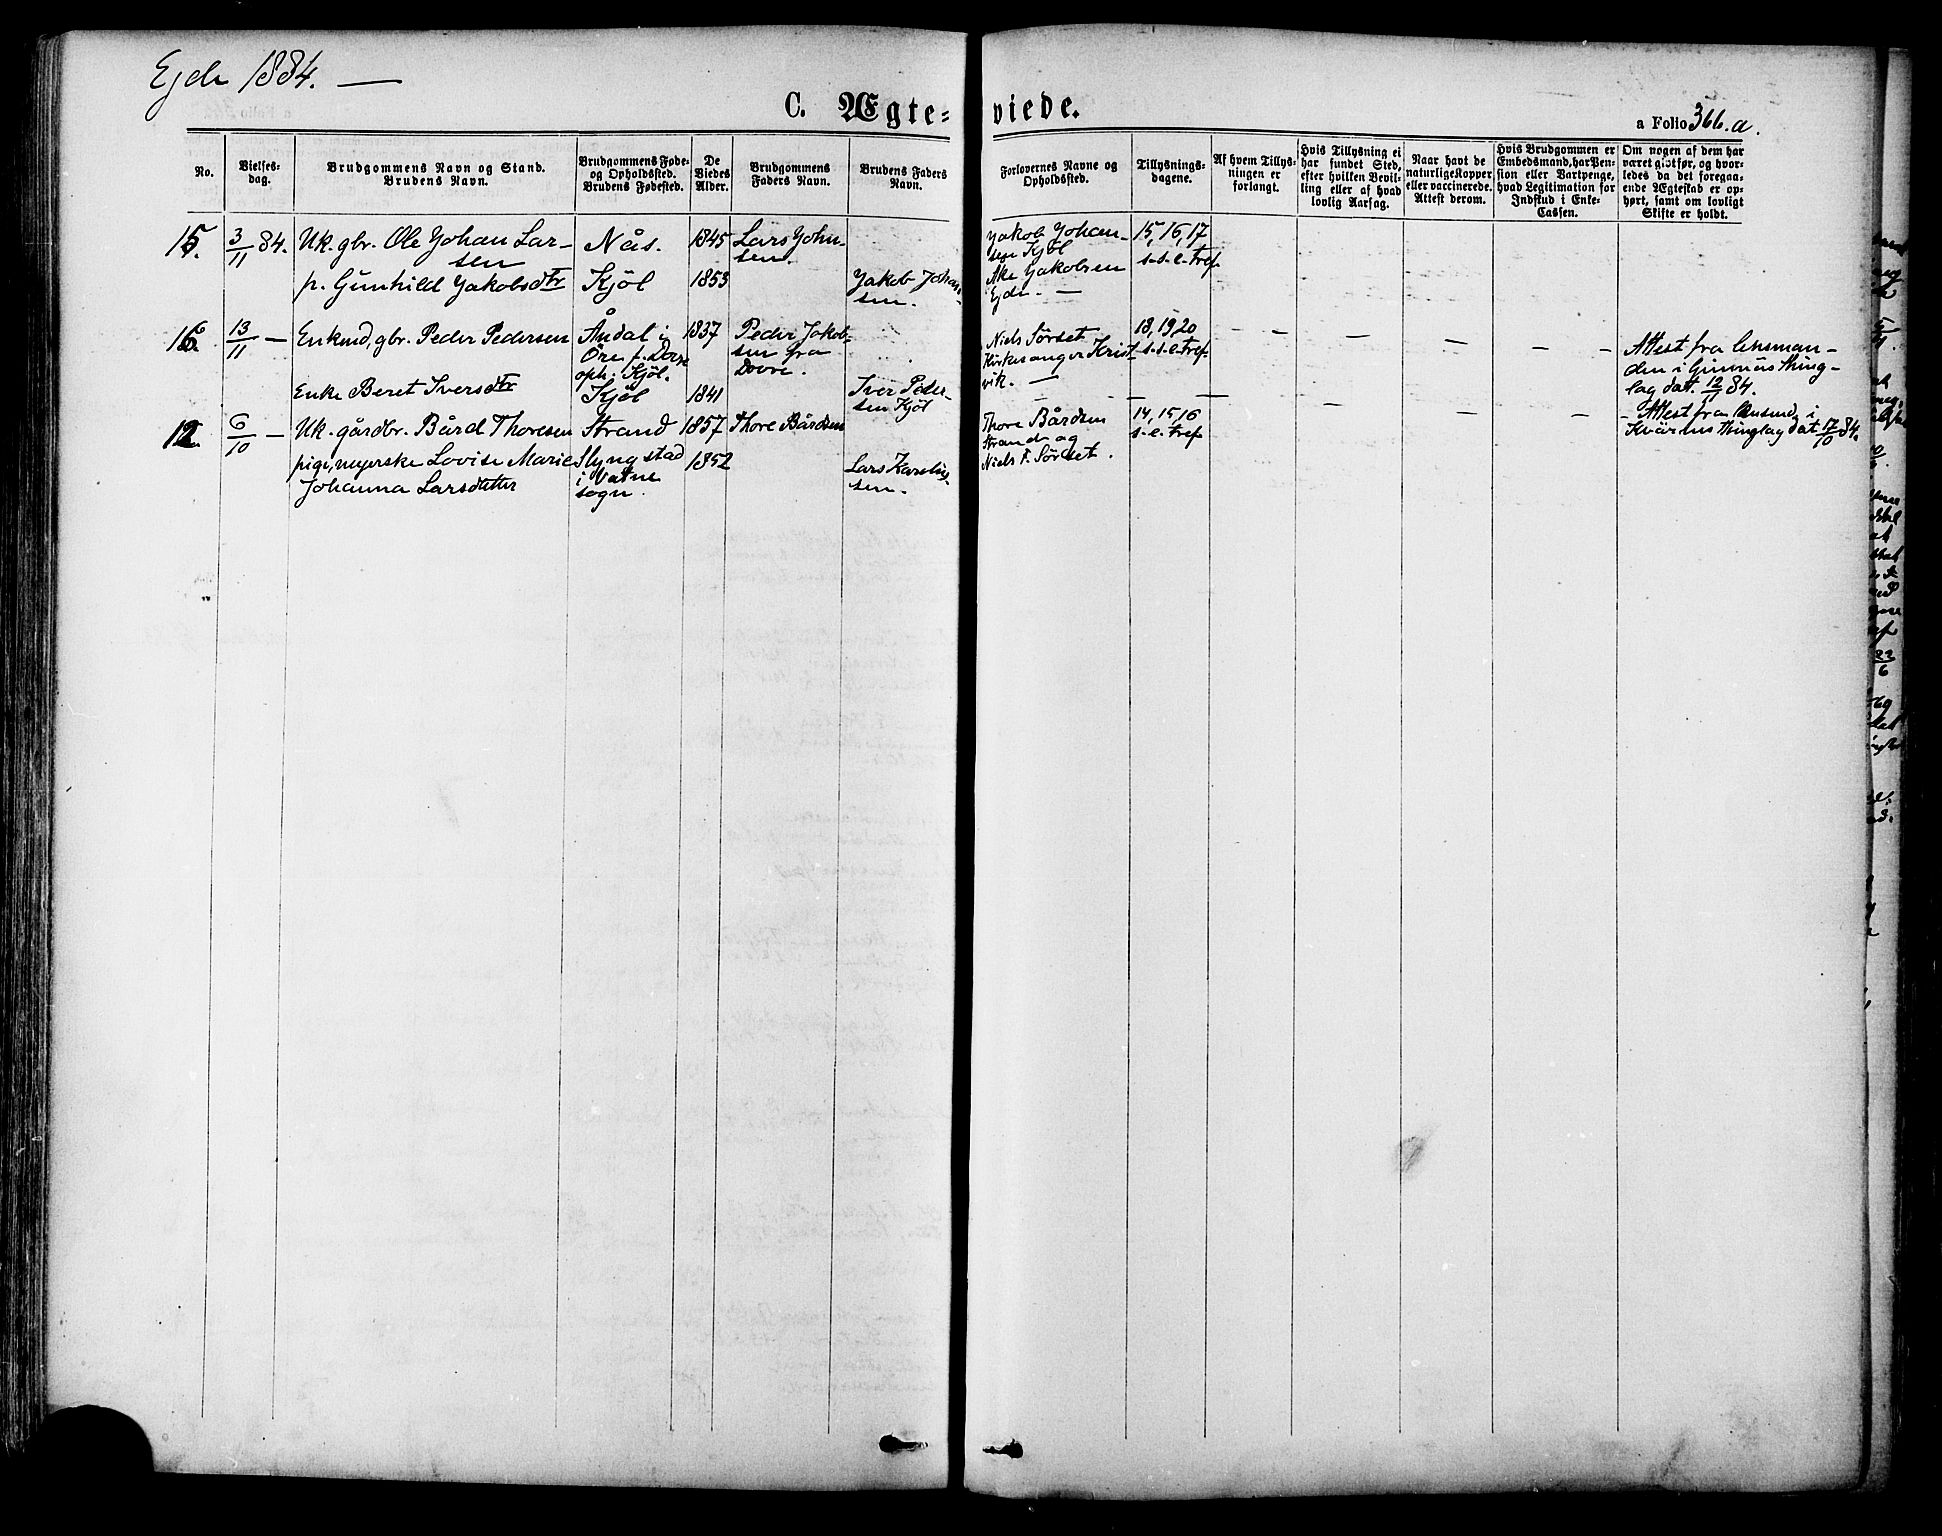 Ejde 1884. —
C. Ægte=viede.
a Folio 366.a.
No.
Vielses-
dag.
Brudgommens Navn og Stand.
Brudens Navn.
Brudgommens Føde-
og Opholdssted.
Brudens Fødested.
De
Viedes
Alder.
Brudgommens
Faders Navn.
Brudens Faders
Navn.
Forlovernes Navne og
Opholdssted.
Tillysnings-
dagene.
Af hvem Tillys-
ningen er
forlangt.
Hvis Tillysning ei
har fundet Sted,
efter hvilken Bevil-
ling eller af hvad
lovlig Aarsag.
Naar havt de
naturlige Kopper
eller vaccinerede.
Attest derom.
Hvis Brudgommen er
Embedsmand, har Pen-
sion eller Vartpenge,
hvad Legitimation for
Indskud i Enke-
Cassen.
Om nogen af dem har
været giftfør, og hvor-
ledes da det foregaa-
ende Ægteskab er op-
hørt, samt om lovligt
Skifte er holdt.
15. 3/11 84. Uk. gbr. Ole Johan Lar-
sen
Nås. 1845 Lars John-
sen.
p. Gunhild Jakobsdtr Kjöl 1853 Jakob Johan-
sen.
Jakob Johan-
sen Kjöl
Ake Jakobsen
Ejde. —
15, 16, 17
s. e. tref.
16. 13/11 — Enkmd, gbr. Peder Pedersen
Åndal i
Öre p. Dovre
oph. Kjöl.
1837 Peder Jakob-
sen fra
Dovre.
Enke Beret Iversdtr Kjöl 1841 Iver Peder-
sen Kjöl
Niels Sörset
Kirkesanger Krist
vik. —
18, 19 20
s. e. tref.
Attest fra lensman-
den i Gimnæs Thing-
lag datt. 12/11 84.
12. 6/10 — Uk. gårdbr. Bård Thoresen Strand 1857 Thore Bårdsen
pige, mejerske Lovise Marie
Johanna Larsdatter
Slyngstad
i Vatne
sogn.
1852
Lars Karelius-
sen.
Thore Bårdsen
Strand og
Niels F. Sörset.
14, 15, 16
s. e. tref.
Attest fra lensmd, i
Kværnes thinglag dat 17/10 84.